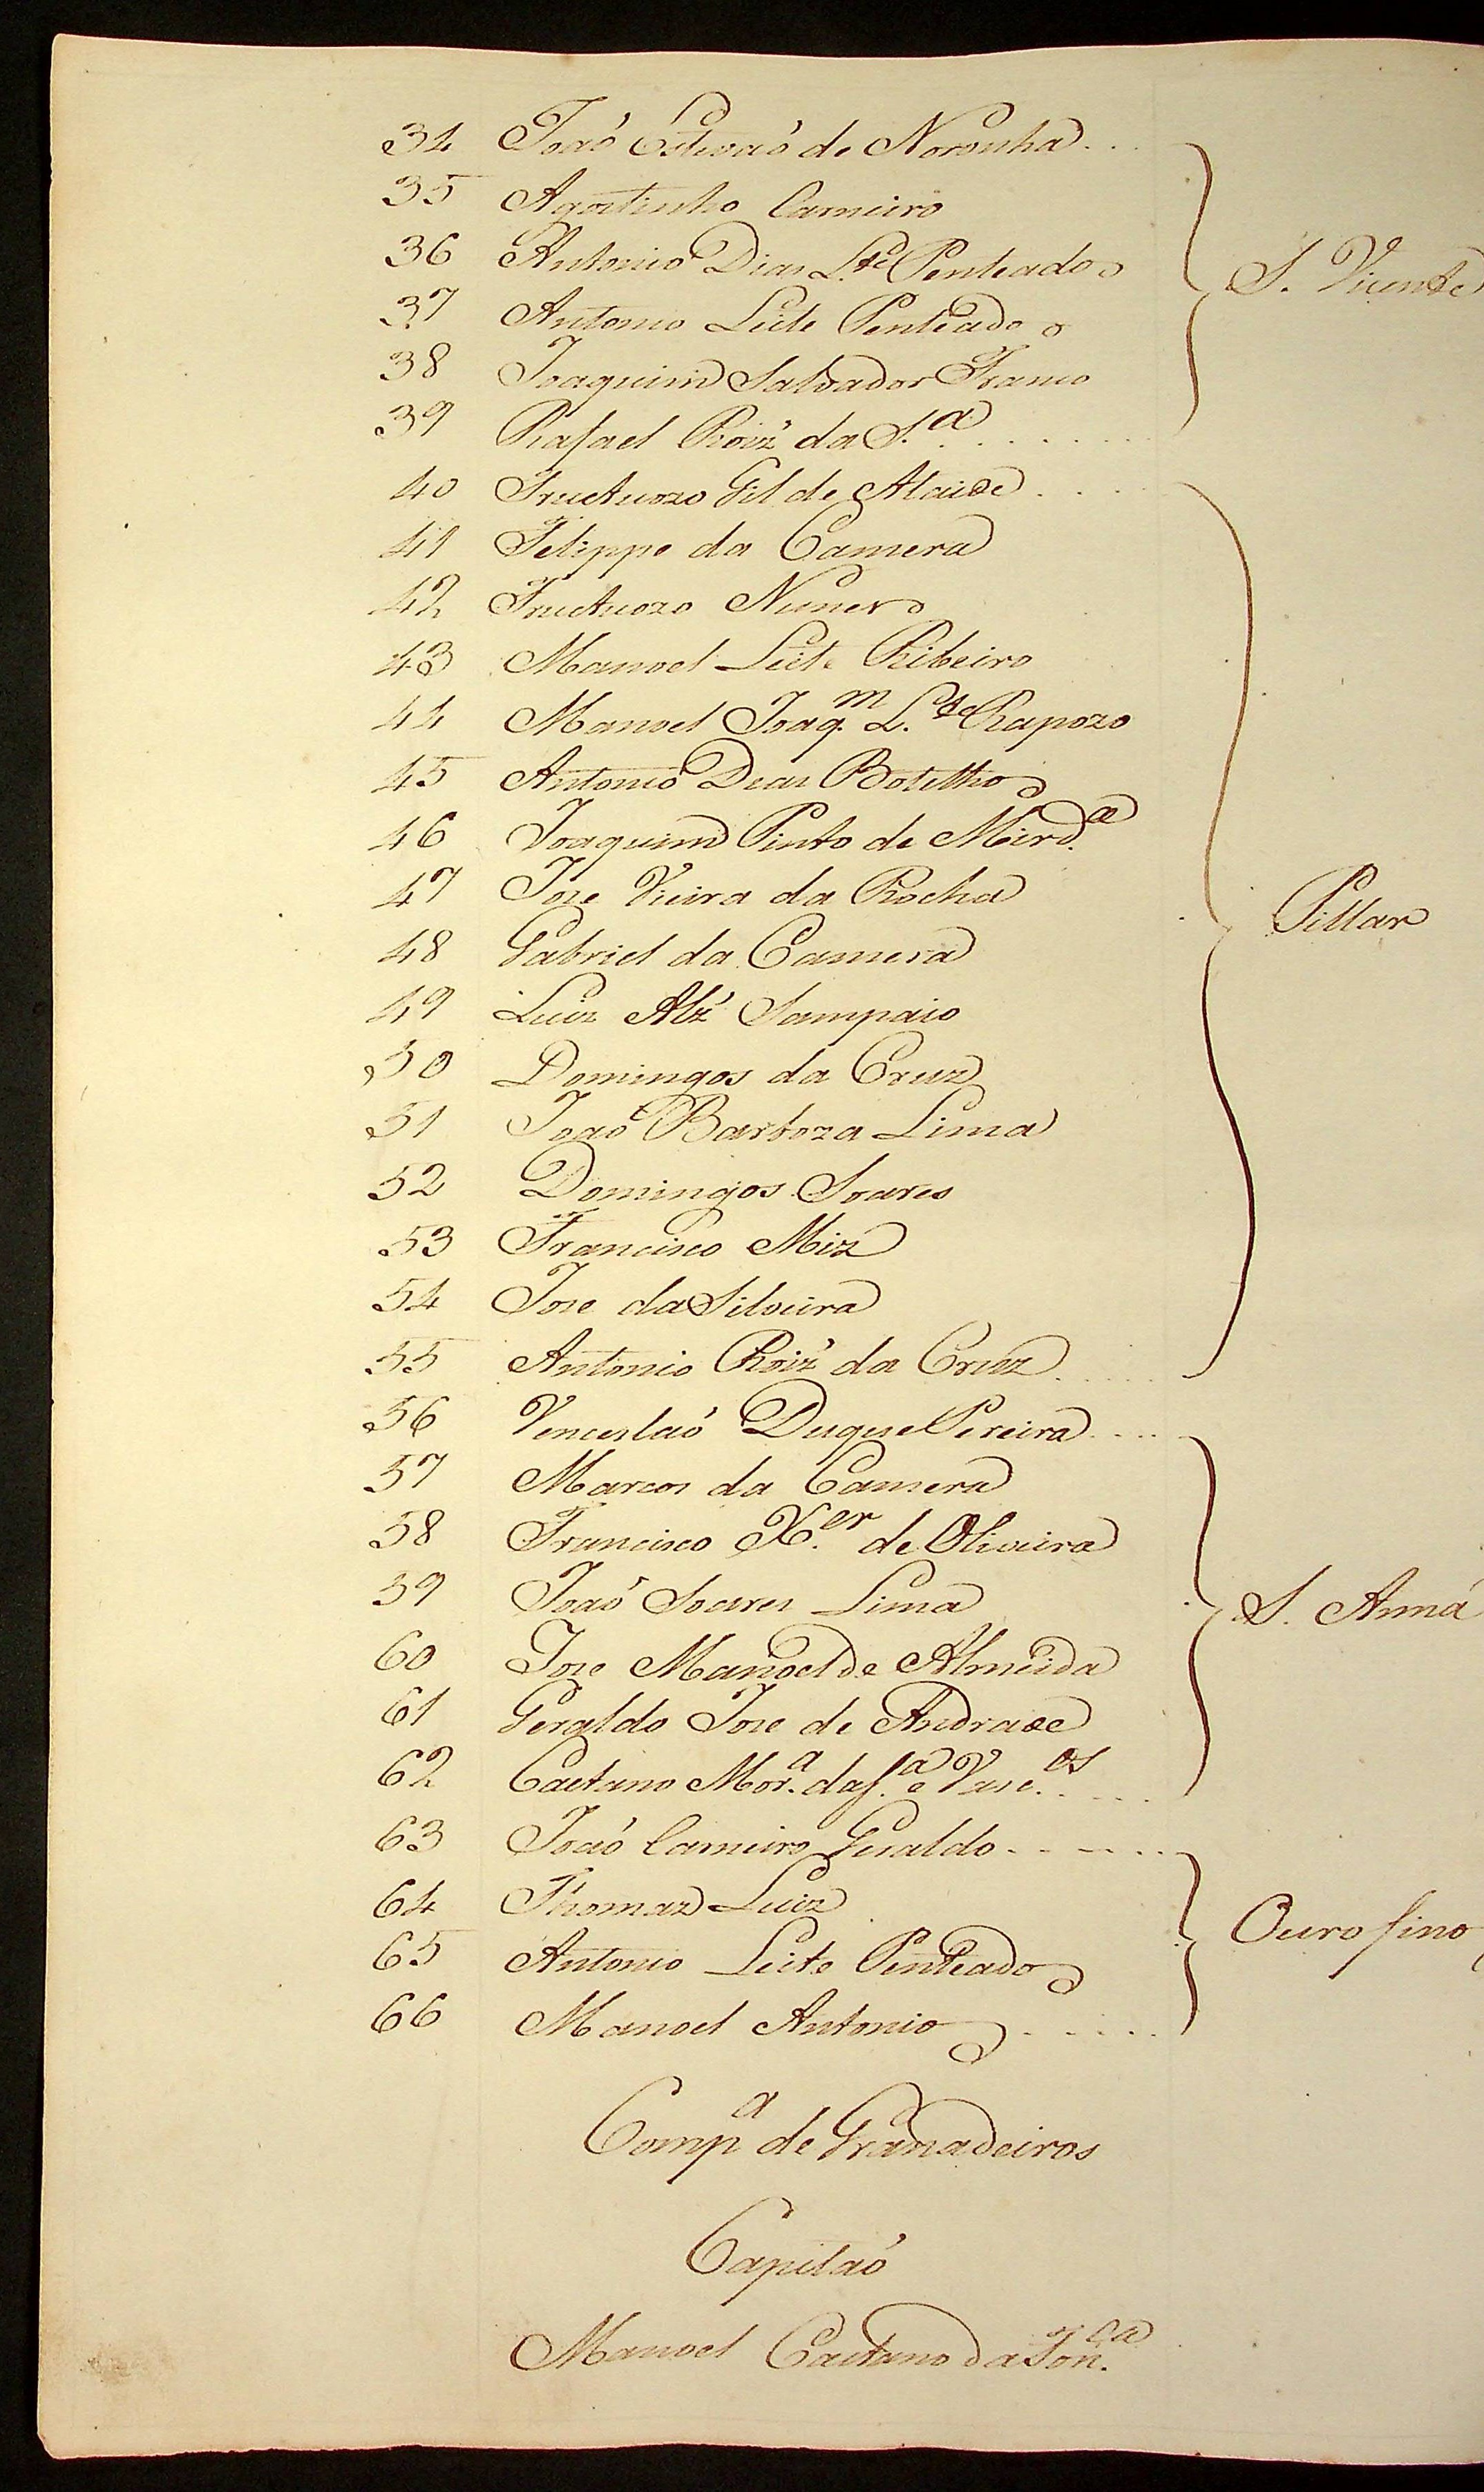 34 Joaõ Estevaõ de Noronha
35 Agostinho Carneiro
36 Antonio Dias L.te Penteado
S. Vicente
37 Antonio Leite Penteado
38 Joaquim Salvador Franco
39 Rafael Roiz' da S.a
40 Fructuozo Gil de Ataide
41 Felippe da Camera
42 Fructuozo Nunes
43 Manoel Leite Ribeiro
44 Manoel Joaq.m L.te Rapozo
45 Antonio Dias Botelho
46 Joaquim Pinto de Mird.a
47 Joze Vieira da Rocha
Pillar
48 Gabriel da Camera
49 Luiz Alz' Sampaio
50 Domingos da Cruz
51 Joaõ Barboza Lima
52 Domingos Soares
53 Francisco Miz
54 Joze da Silveira
55 Antonio Roiz' da Cruz
56 Venceslaó Duque Pereira
57 Marcos da Camera
58 Francisco X.er de Oliveira
59 Joaõ Soares Lima
S. Anna
60 Joze Manoel de Almeida
61 Geraldo Joze de Andrade
62 Caetano Mor.a da S.a e Vasc.os
63 Joaõ Carneiro Geraldo
64 Thomaz Luiz
Ouro fino
65 Antonio Leite Penteado
66 Manoel Antonio
Comp.a de Granadeiros
Capitaõ
Manoel Caetano da Fon.ca